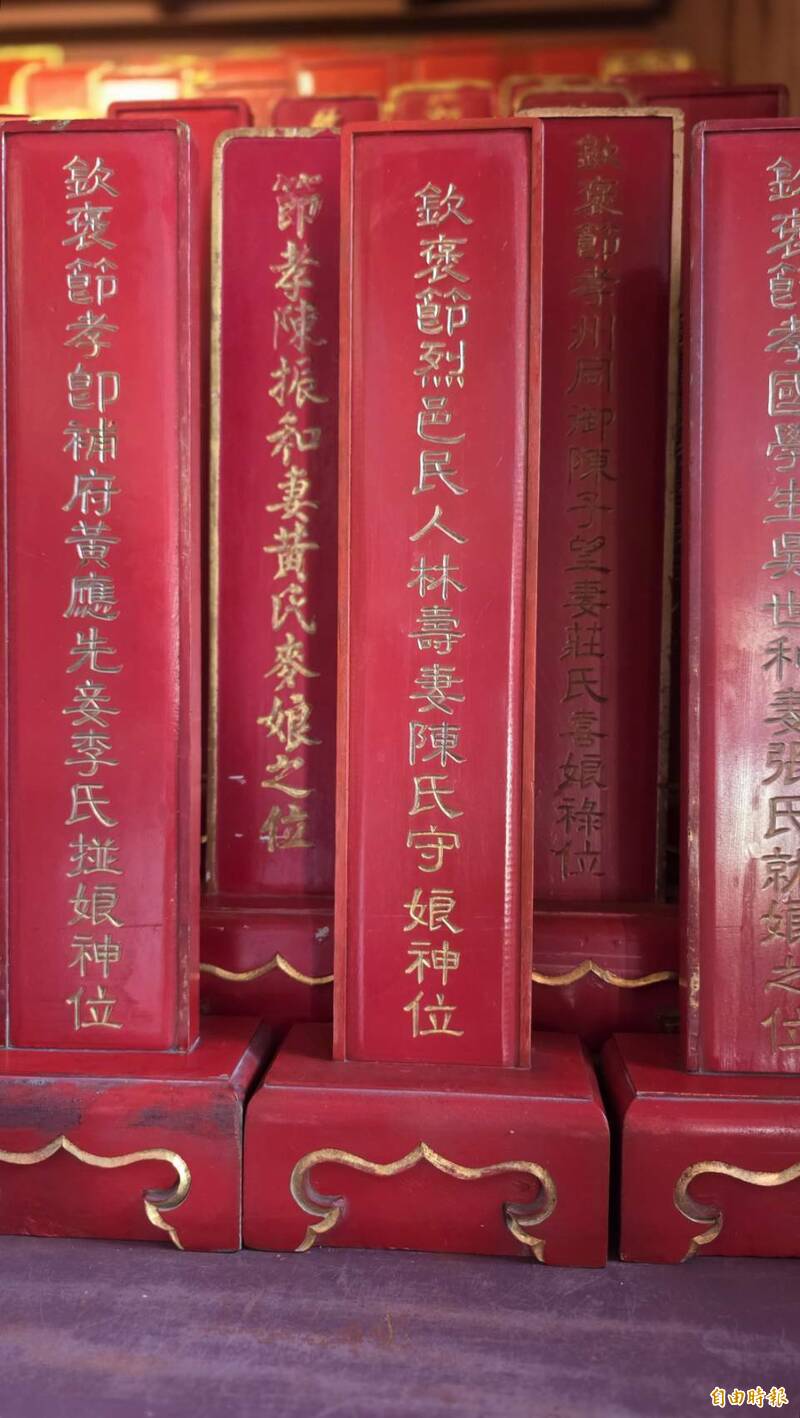 欽褒節孝國學生吳世和妻張氏就娘之位
欽褒節孝州同御陳子望妻莊氏喜娘祿位
欽褒節烈邑民人林壽妻陳氏守娘神位
節孝陳振和妻黃氏麥娘之位
欽褒節孝即補府黃應先妾李氏㨗娘神位
自由時報